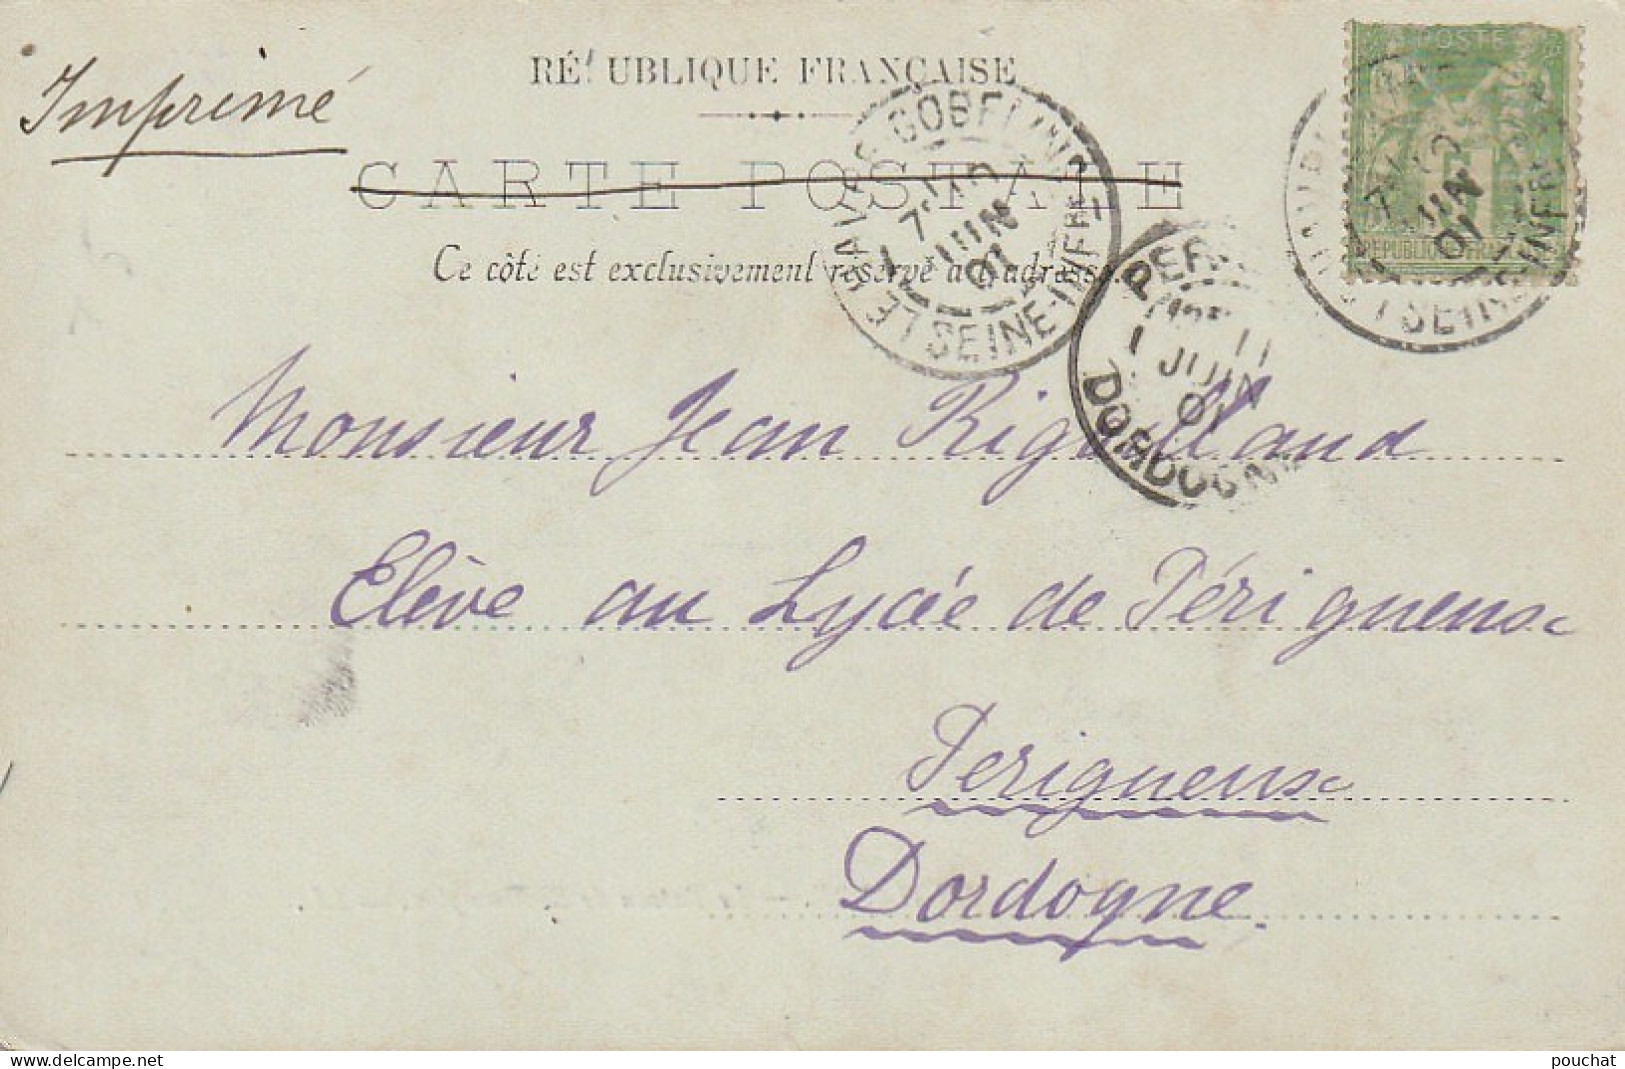 Imprimé
RÉPUBLIQUE FRANÇAISE
CARTE POSTALE
Ce côté est exclusivement réservé à l'adresse.
POSTE
REPUBLIQUE FRANC
LE HAVRE GOBELINS
JUIN
01
SEINE-INFRE
JUIN
01
SEINE-INFRE
11
JUIN
01
DORDOGNE
Monsieur Jean
Elève au Lycée de Périgueux
Perigueux
Dordogne.
pouchat